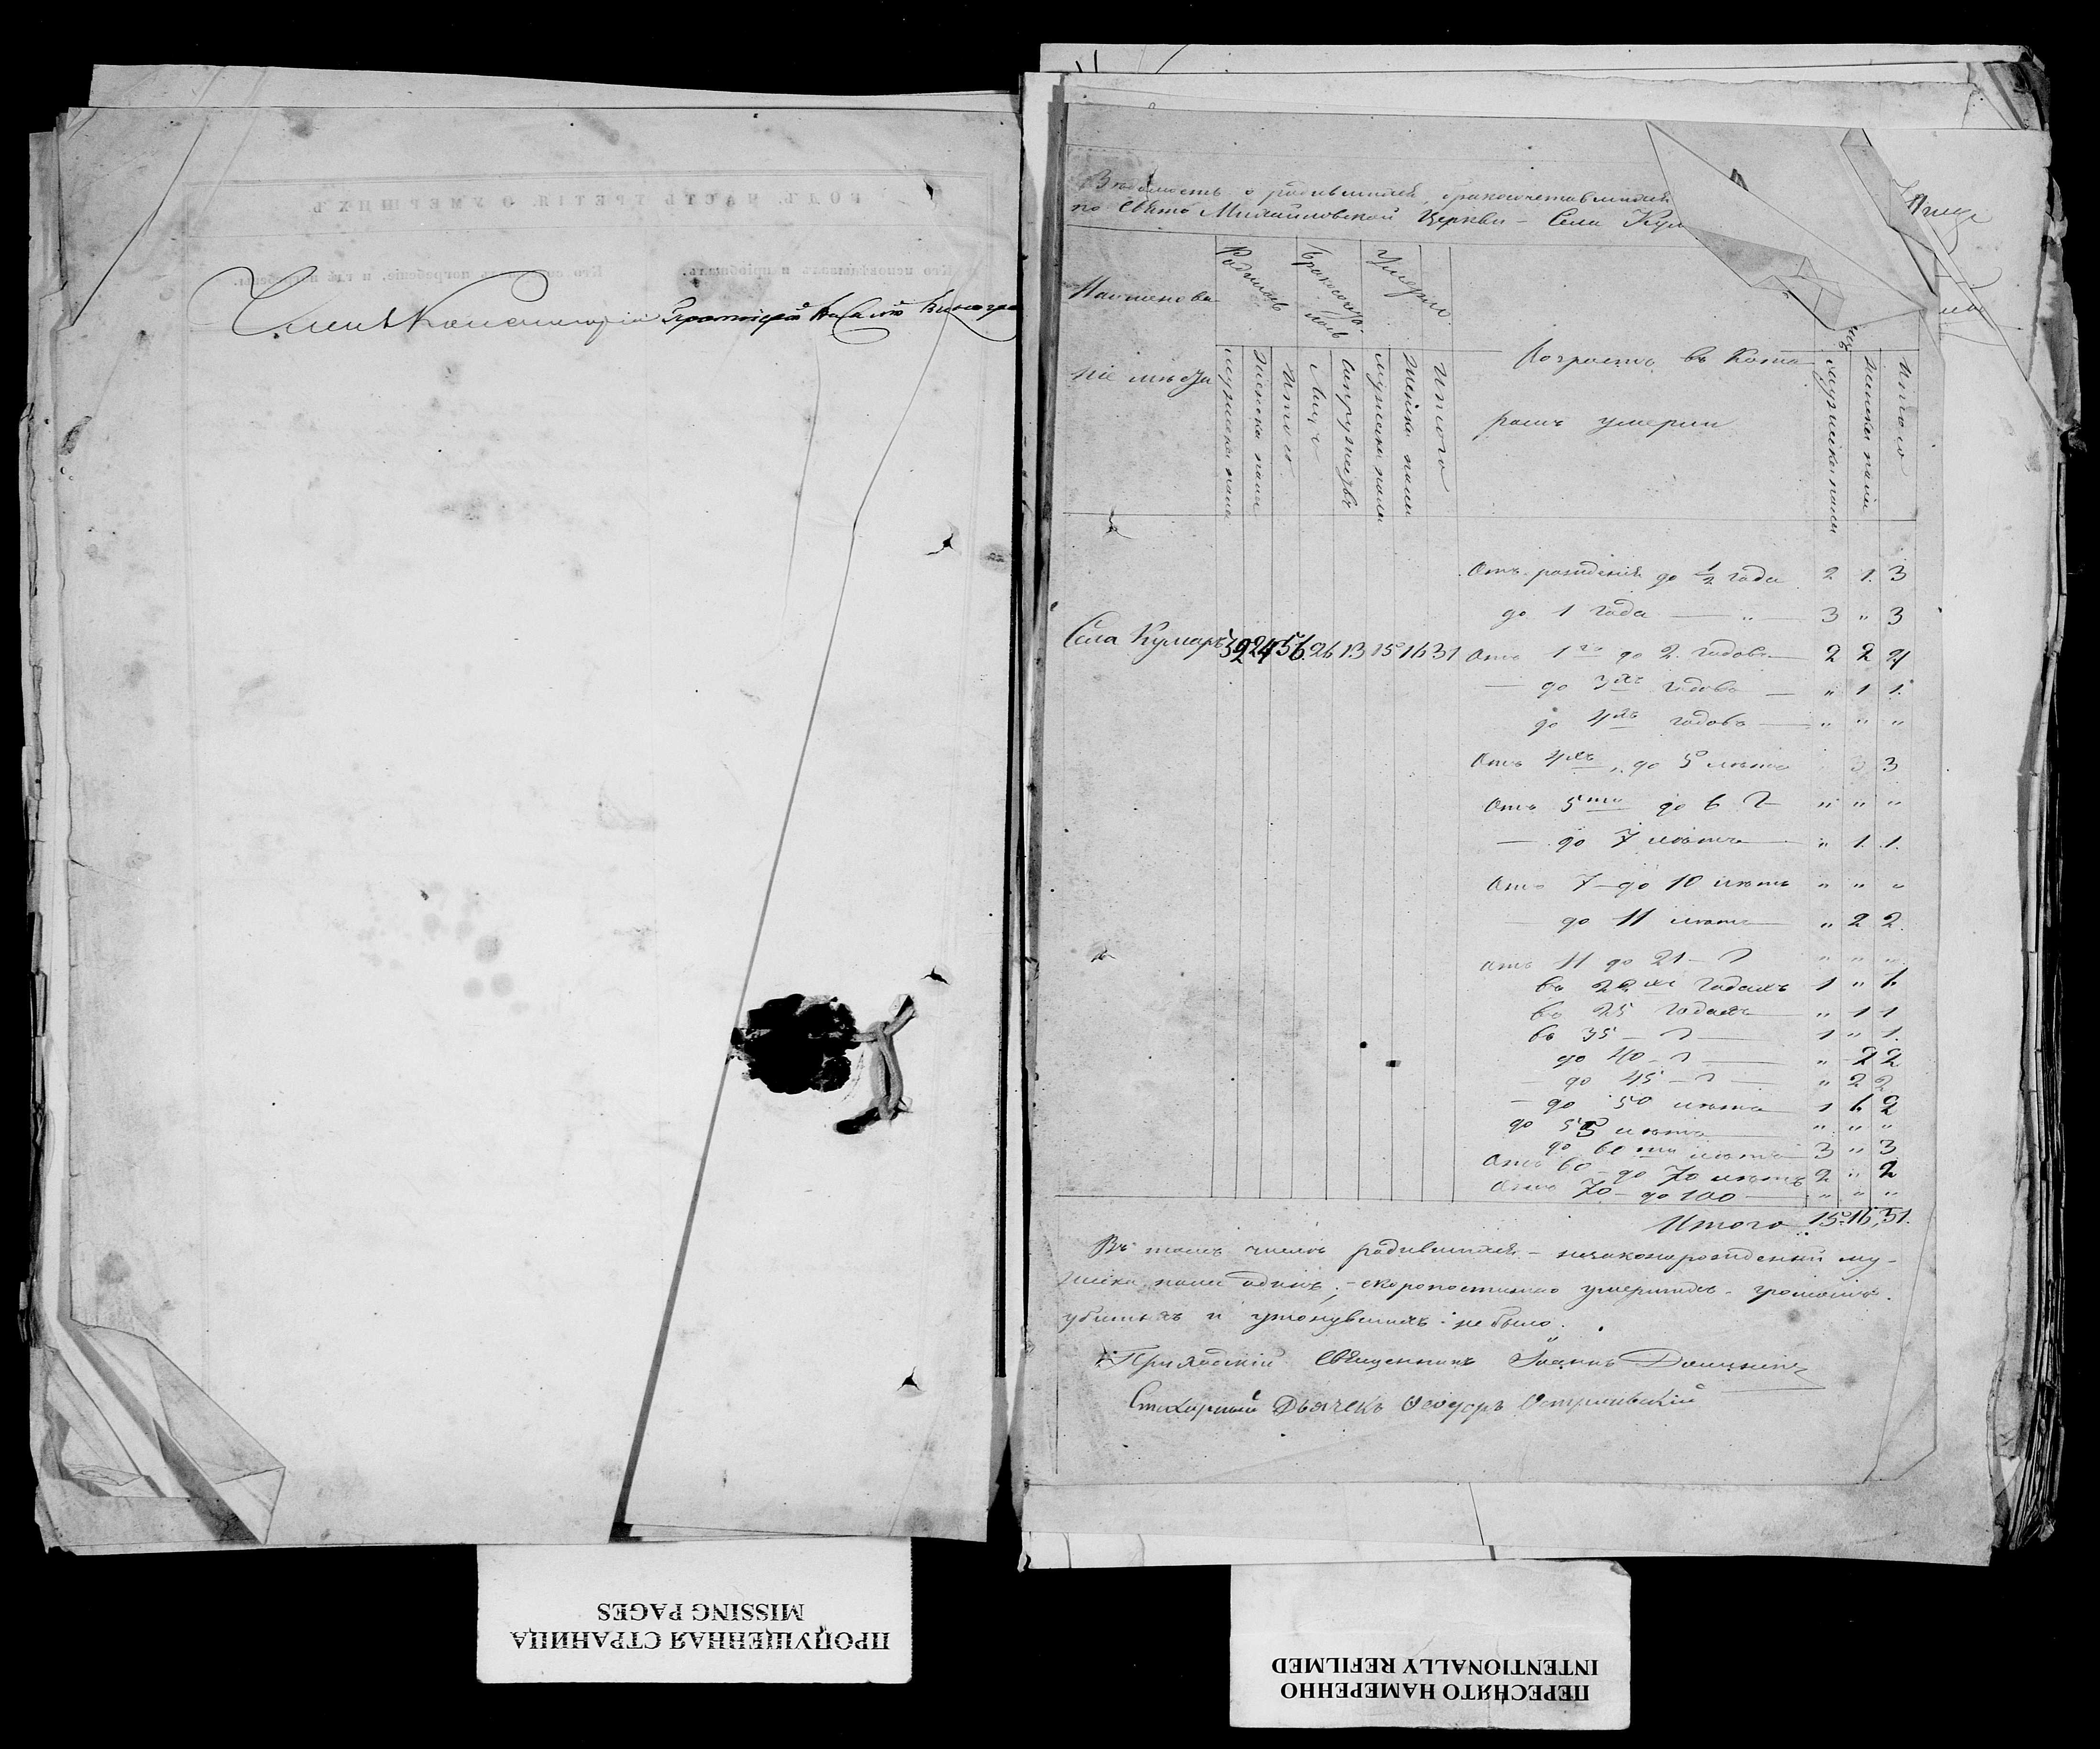 Членъ Консисторіи Протоіерей Василій Виногра
Вѣдомость о родившихся, бракосочетавшихся
по Свято Михайловской Церкви - Села Кум
Наименова-
ніе мѣста
Родилось
Бракосочета-
лось
Умерло
Мужеска пола
Женска пола
Итого
Лицъ
Супружествъ
Мужеска пола
Женска пола
Итого
Возрастъ въ кото-
ромъ умерли
Мужеска пола
Женска пола
Итого
Отъ рожденія до ½ года 2 1 3
до 1 года — „ — 3 „ 3
Села Кумаръ 32 24 56 26 13 15 16 31
Отъ 1го до 2 годовъ — 2 2 4
— до 3хъ годовъ — „ 1 1
до 4хъ годовъ — „ „ „
Отъ 4хъ до 5 лѣтъ 3 3
Отъ 5ти до 6 — „ „ „
— до 7 лѣтъ — „ 1 1
Отъ 7 - до 10 лѣтъ „ „ „
— до 11 лѣтъ — „ 2 2
Отъ 11 до 21 — „ „ „
въ 22хъ годахъ 1 „ 1
въ 25 годахъ — „ 1 1
въ 35 — 1 „ 1
до 40 — „ 2 2
до 45 — „ 2 2
— до 50 лѣтъ — 1 1 2
до 55 лѣтъ — „ „ „
до 60ти лѣтъ — 3 „ 3
Отъ 60 - до 70 лѣтъ 2 „ 2
Отъ 70 - до 100 — „ „ „
Итого 15. 16. 31.
Въ томъ числѣ родившихся - незаконорожденный му-
жеска пола одинъ; - скоропостижно умершихъ - громомъ
убитыхъ и утонувшихъ - не было.
Приходскій Священникъ Іоаннъ
Стихарный Дьячекъ Ѳеодоръ
ПРОПУЩЕННАЯ СТРАНИЦА
MISSING PAGES
ПЕРЕСНЯТО НАМЕРЕННО
INTENTIONALLY REFILMED